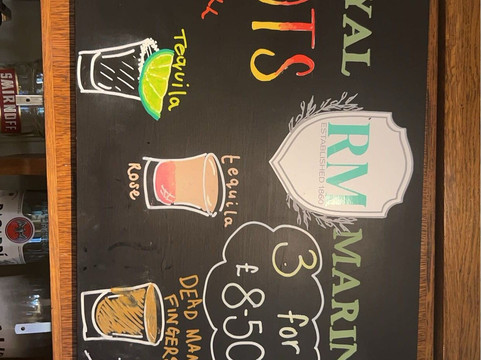 YAL
RM
ESTABLISHED
MARIN
OTS
3 for
£8.50
Tequila
tequila
Rose
DEAD MAN
FINGER
SMIRNOFF